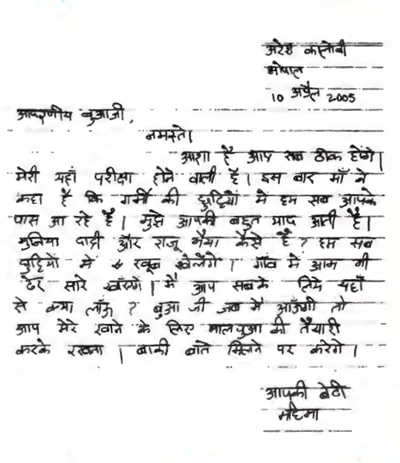 अरेरा कालोनी
भोपाल
10 अप्रैल 2005
आदरणीय बुआजी,
नमस्ते।
आशा है आप सब ठीक होंगे।
मेरी यहाँ परीक्षा होने वाली है। इस बार माँ ने
कहा है कि गर्मी की छुट्टियों में हम सब आपके
पास आ रहे हैं। मुझे आपकी बहुत याद आती है।
मुनिया दीदी और राजू भैया कैसे हैं? हम सब
छुट्टियों में खूब खेलेंगे। गाँव में आम भी
ढेर सारे खाँएगे। मैं आप सबके लिये यहाँ
से क्या लाऊँ? बुआ जी जब मैं आऊँगी तो
आप मेरे खाने के लिए मालपुआ की तैयारी
करके रखना। बाकी बातें मिलने पर करेंगे।
आपकी बेटी
महिमा